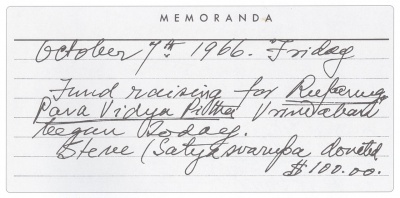 MEMORANDA
October 7th 1966. Friday
Fund raising for Rupanuga
Para Vidya Pitha Vrindaban
began today.
Steve (Satyaswarupa donated
$100.00.